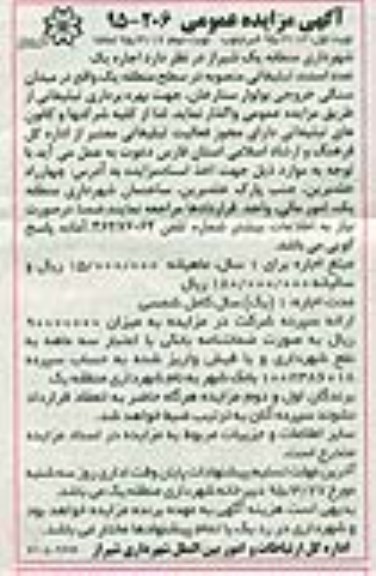 آگهی مزایده عمومی ۲۰۶-۹۵
شهرداری منطقه یک شیراز در نظر دارد اجاره یک
عدد استند تبلیغاتی منصوبه در سطح منطقه یک واقع در میدان
سنگی خروجی بولوار ستارخان، جهت بهره برداری تبلیغاتی از
طریق مزایده عمومی واگذار نماید. لذا از کلیه شرکتها و کانون
های تبلیغاتی دارای مجوز فعالیت تبلیغاتی معتبر از اداره کل
فرهنگ و ارشاد اسلامی استان فارس دعوت به عمل می آید با
توجه به موارد ذیل جهت اخذ اسناد مزایده به آدرس: چهارراه
جنب پارک ساختمان شهرداری منطقه
یک، امور مالی، واحد قراردادها مراجعه نمایند. ضمنا درصورت
نیاز به اطلاعات بیشتر شماره تلفن آماده پاسخ
گویی می باشد.
مبلغ اجاره برای ۱ سال، ماهیانه ۱۵/۰۰۰/۰۰۰ ریال و
سالیانه ۱۸۰/۰۰۰/۰۰۰ ریال
مدت اجاره: ۱ (یک) سال کامل شمسی
ارائه سپرده شرکت در مزایده به میزان
ریال به صورت ضمانتنامه بانکی با اعتبار سه ماهه به
نفع شهرداری و یا فیش واریز شده به حساب سپرده
بانک شهر به نام شهرداری منطقه یک
برندگان اول و دوم مزایده هرگاه حاضر به انعقاد قرارداد
نشوند سپرده آنان به ترتیب ضبط خواهد شد.
سایر اطلاعات و جزییات مربوط به مزایده در اسناد مزایده
مندرج است.
آخرین مهلت تسلیم پیشنهادات پایان وقت اداری روز سه شنبه
مورخ دبیرخانه شهرداری منطقه یک می باشد.
بدیهی است هزینه آگهی به عهده برنده مزایده خواهد بود
و شهرداری در رد یک یا تمام پیشنهادها مختار می باشد.
اداره کل ارتباطات و امور بین الملل شهرداری شیراز